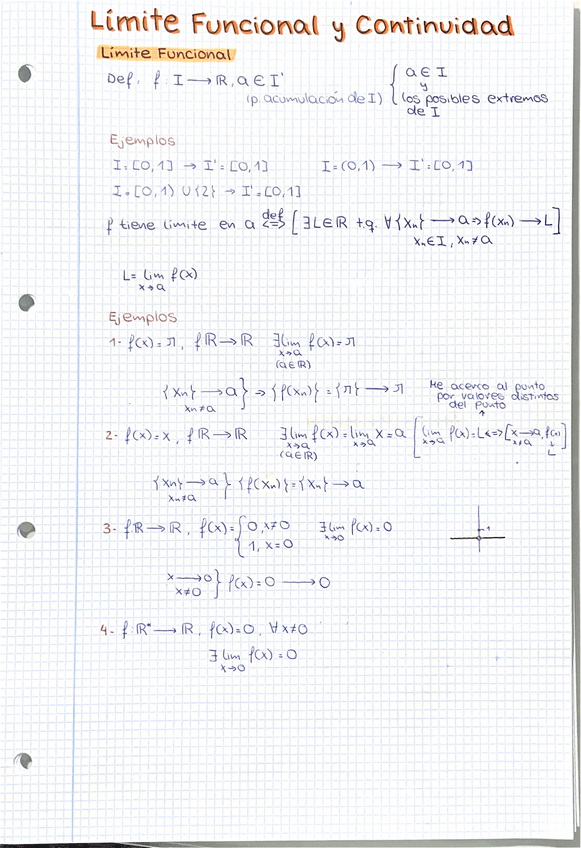 Límite Funcional y Continuidad
Límite Funcional
Def: f: I → ℝ, a ∈ I' { a ∈ I
y
(p. acumulación de I) los posibles extremos
de I
Ejemplos
I = [0,1] → I' = [0,1] I = (0,1) → I' = [0,1]
I = [0,1) ∪ {2} → I' = [0,1]
f tiene límite en a def <=> [∃L ∈ ℝ t.q. ∀{xn} → a => f(xn) → L]
xn ∈ I, xn ≠ a
L = lim f(x)
x→a
Ejemplos
1- f(x) = π, f: ℝ → ℝ ∃ lim f(a) = π
x→a
(a ∈ ℝ)
{xn} → a } => {f(xn)} = {π} → π Me acerco al punto
xn ≠ a por valores distintos
del punto
↑
2- f(x) = x, f: ℝ → ℝ ∃ lim f(x) = lim x = a [lim f(x) = L <=> [x → a, f(x)
x→a x→a x→a x ≠ a ↓
(a ∈ ℝ) L
{xn} → a } {f(xn)} = {xn} → a
xn ≠ a
3- f: ℝ → ℝ, f(x) = { 0, x ≠ 0 ∃ lim f(x) = 0
1, x = 0 x→0
1
x → 0 } f(x) = 0 → 0
x ≠ 0
4- f: ℝ* → ℝ, f(x) = 0, ∀x ≠ 0
∃ lim f(x) = 0
x→0